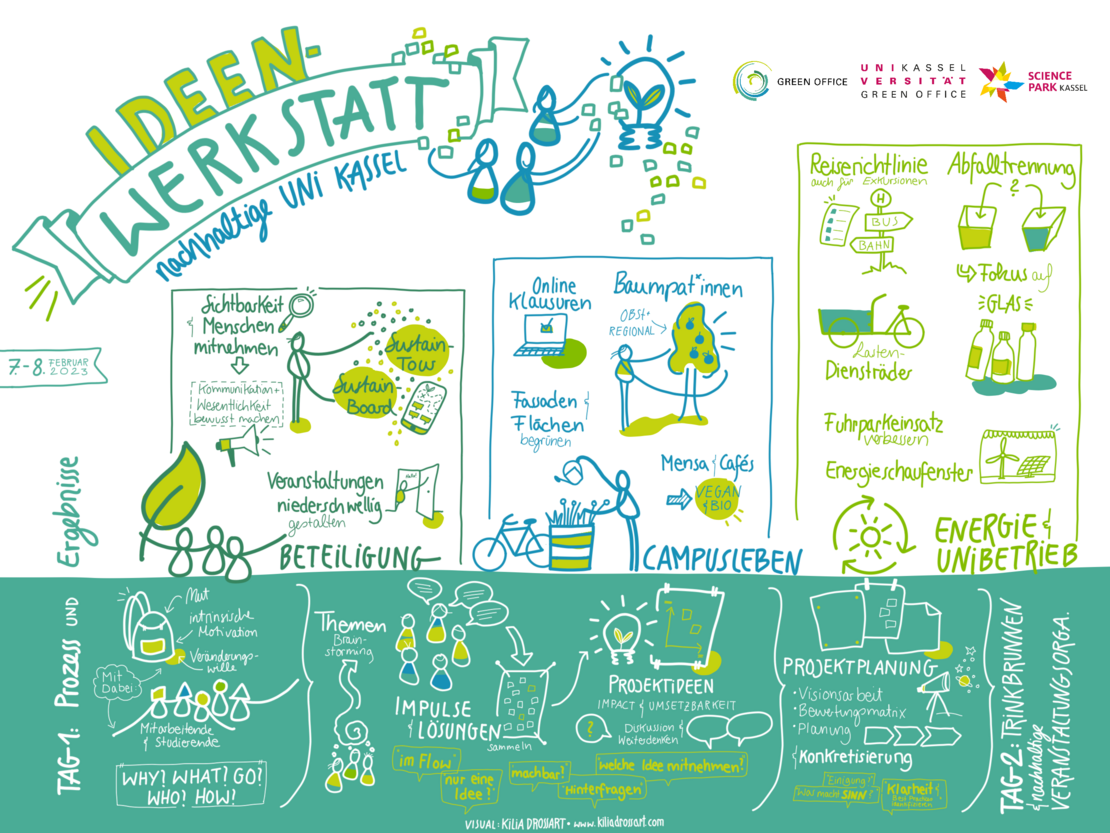 IDEEN-
WERKSTATT
nachhaltige UNI KASSEL
GREEN OFFICE
UNIKASSEL
VERSITÄT
GREEN OFFICE
SCIENCE
PARK KASSEL
7.-8. FEBRUAR
2023
Ergebnisse
Sichtbarkeit
& Menschen
mitnehmen
Kommunikation+
Wesentlichkeit
bewusst machen
Sustain-
Tow
Sustain-
Board
Veranstaltungen
niederschwellig
gestalten
BETEILIGUNG
Online
Klausuren
Baumpat*innen
OBST+
REGIONAL
Fassaden &
Flächen
begrünen
Mensa & Cafés
VEGAN
& BIO
CAMPUSLEBEN
Reiserichtlinie
auch für Exkursionen
H
BUS
BAHN
Abfalltrennung
?
Fokus auf
GLAS
Lasten-
Diensträder
Fuhrparkeinsatz
verbessern
Energieschaufenster
ENERGIE &
UNIBETRIEB
TAG-1: Prozess UND
Mut
intrinsische
Motivation
Veränderungs-
wille
Mit
Dabei
Mitarbeitende
& Studierende
WHY? WHAT? GO?
WHO? HOW?
Themen
Brain-
storming
IMPULSE
& LÖSUNGEN
sammeln
"im Flow"
"nur eine
Idee?"
PROJEKTIDEEN
IMPACT & UMSETZBARKEIT
?
Diskussion &
Weiterdenken
machbar?
"Hinterfragen"
"welche Idee mitnehmen?"
PROJEKTPLANUNG
• Visionsarbeit
• Bewertungsmatrix
• Planung
& Konkretisierung
"Einigung?
Was macht SINN?"
Klarheit &
TAG-2: TRINKBRUNNEN
& nachhaltige
VERANSTALTUNGSORGA.
VISUAL: KILIA DROSSART • www.kiliadrossart.com